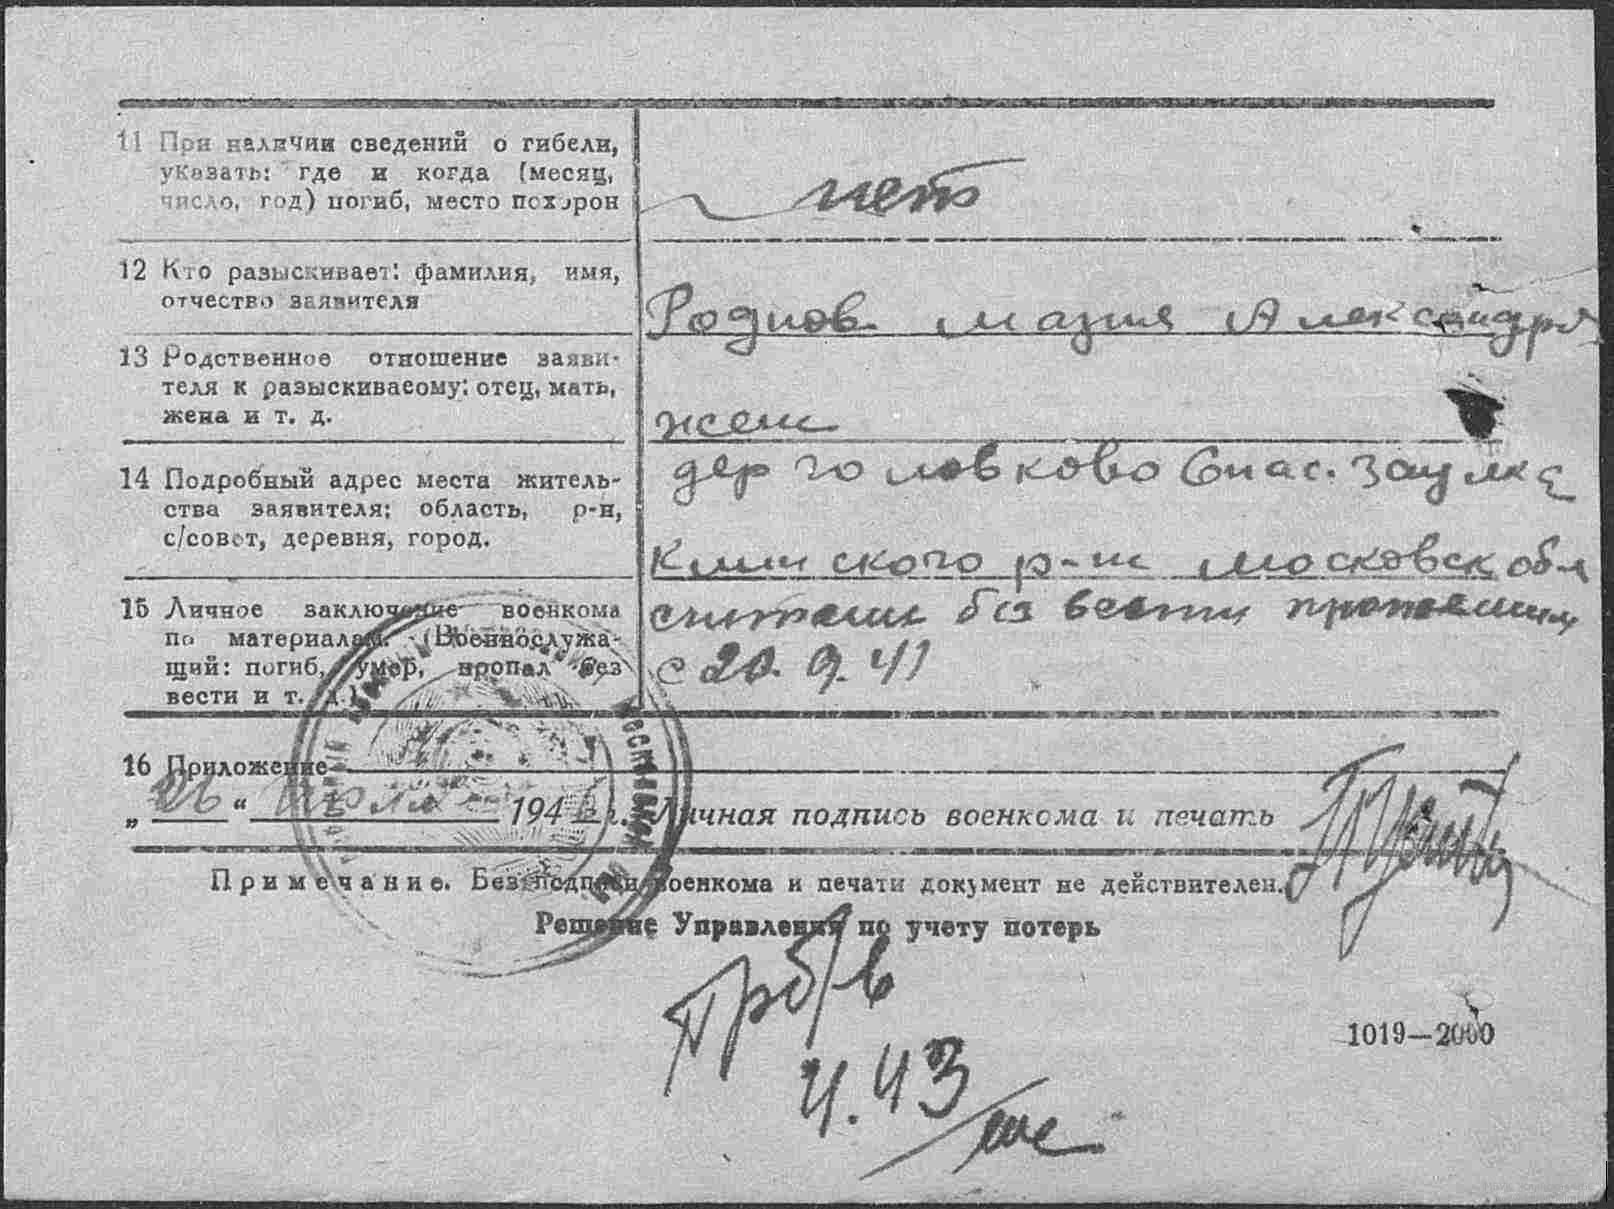 11 При наличии сведений о гибели,
указать: где и когда (месяц,
число, год) погиб, место похорон
нет
12 Кто разыскивает: фамилия, имя,
отчество заявителя
Роднов Мария Александр
13 Родственное отношение заяви-
теля к разыскиваемому: отец, мать,
жена и т. д.
жена
14 Подробный адрес места житель-
ства заявителя; область, р-н,
с/совет, деревня, город.
дер Головково Спас. Заулка
Клинского р-на Московск обл
15 Личное заключение военкома
по материалам. (Военнослужа-
щий: погиб, умер, пропал без
вести и т. д.)
считаем без вести пропавшим
с 20. 9. 41
16 Приложение
„ 26 “ 194 г. Личная подпись военкома и печать
Примечание. Без подписи военкома и печати документ не действителен.
Решение Управления по учету потерь
прб/в
4.43
1019—2000